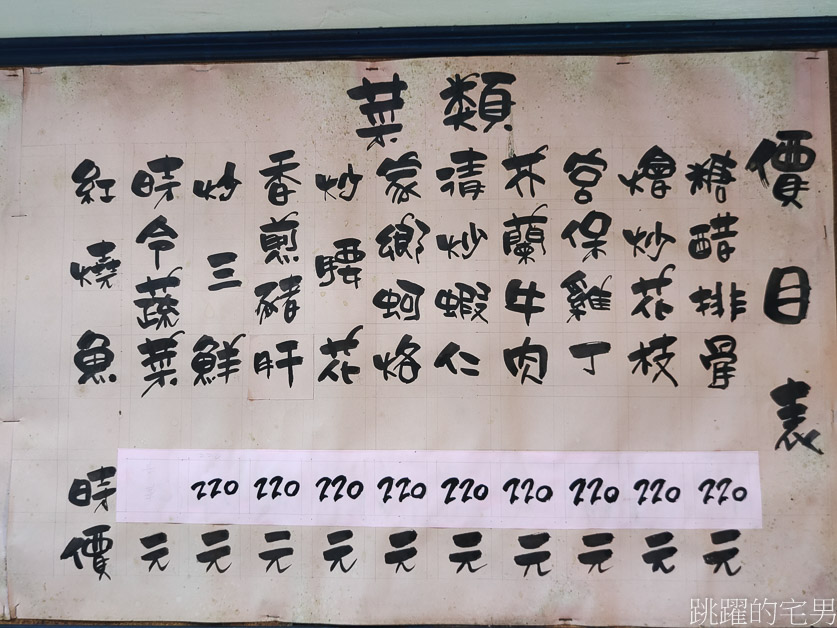 價目表
菜類
糖醋排骨 220元
燴炒花枝 220元
宮保雞丁 220元
芥蘭牛肉 220元
清炒蝦仁 220元
家鄉蚵烙 220元
炒腰花 220元
香煎豬肝 220元
炒三鮮 220元
時令蔬菜 元
紅燒魚 時價
跳躍的宅男